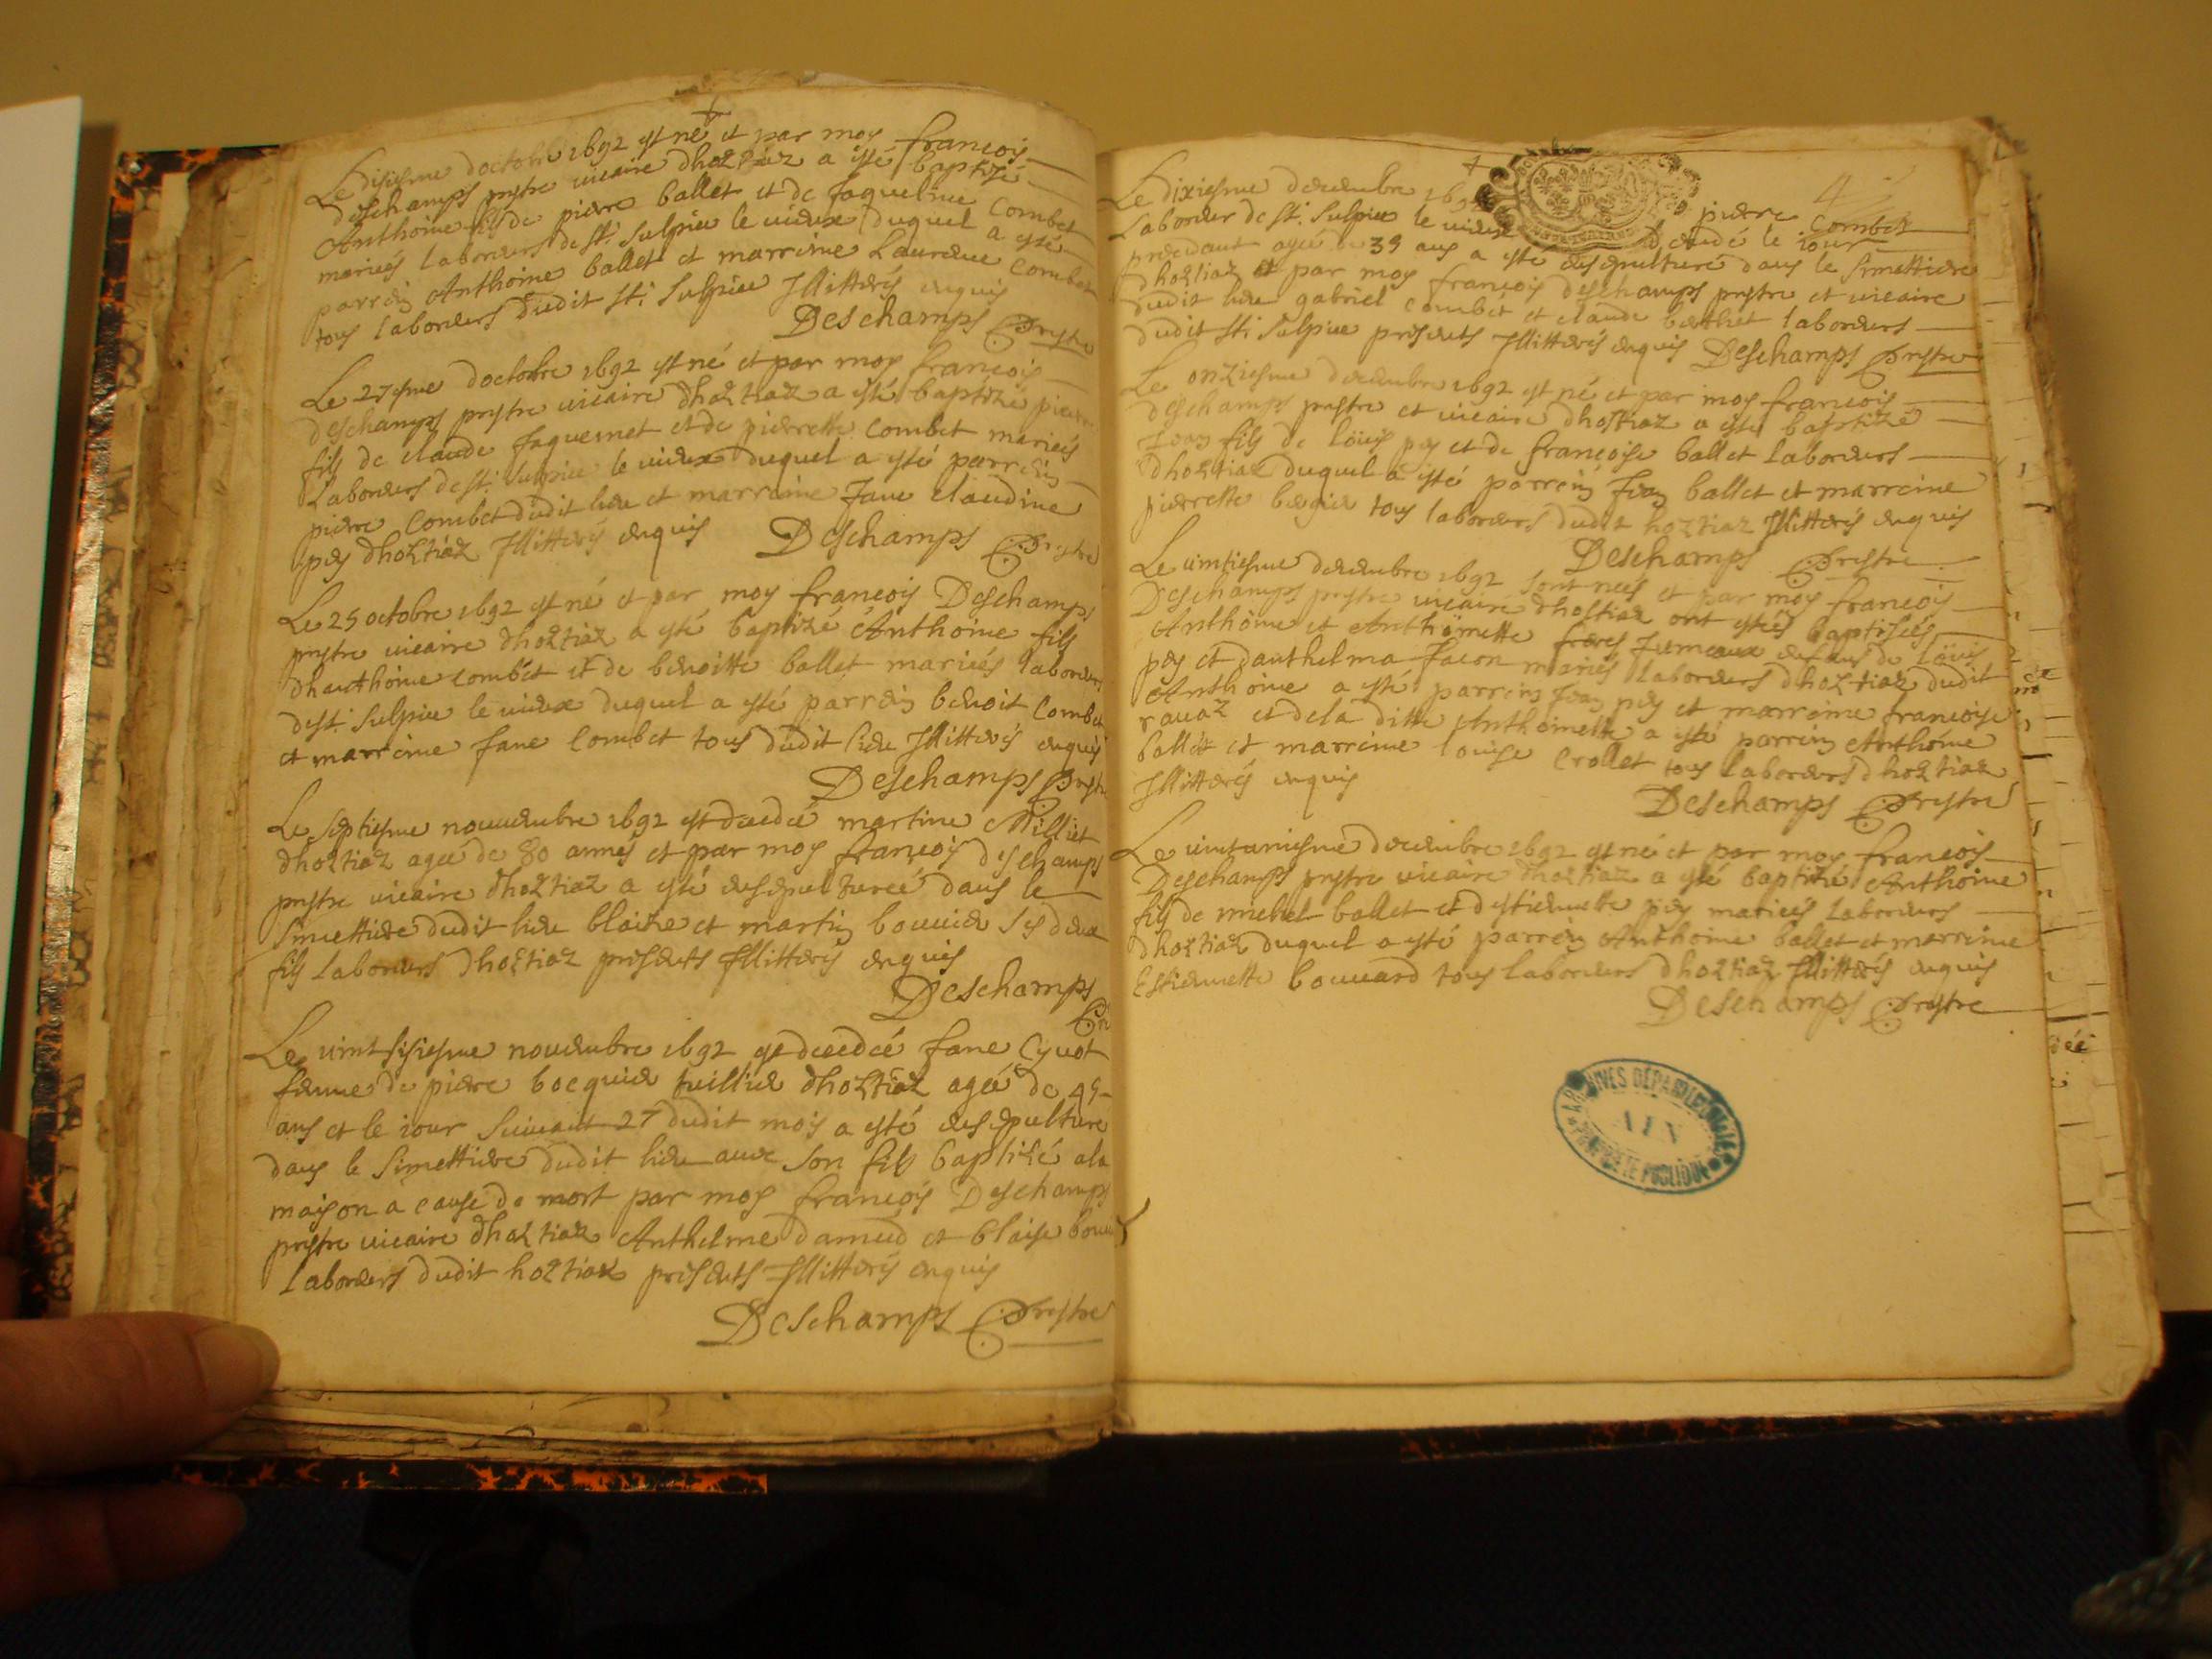 Le disiesme doctobre 1692 est né et par moy francois
deschamps prestre vicaire dhoztiaz a esté baptizé
Anthoine fils de pierre ballet et de Jaqueline Combet
mariés laboreurs de st. Sulpice le vieux duquel a esté
parrein Anthoine ballet et marreine Laurence Combet
tous laboreurs dudit st. Sulpice Jllitterés enquis
Deschamps Prestre
Le 27esme doctobre 1692 est né et par moy francois
Deschamps prestre vicaire dhoztiaz a esté baptizé pierre
fils de claude Jaquemet et de pierrette Combet mariés
Laboreurs de st. Sulpice le vieux duquel a esté parrein
pierre Combet dudit lieu et marreine Jane claudine
pey dhoztiaz Jllitterés enquis Deschamps Prestre
Le 25 octobre 1692 est né et par moy francois Deschamps
prestre vicaire dhoztiaz a esté baptizé Anthoine fils
dhanthoine combet et de benoitte ballet mariés laboreurs
de st. Sulpice le vieux duquel a esté parrein benoit Combet
et marreine Jane Combet tous dudit lieu Jllitterés enquis
Deschamps Prestre
Le septiesme nouvembre 1692 est decedée martine Milliet
dhoztiaz agée de 80 années et par moy francois deschamps
prestre vicaire dhoztiaz a esté ensepulturée dans le
Simettiere dudit lieu blaize et martin bouvier ses deux
fils laboreurs dhoztiaz presents Jllitterés enquis
Deschamps
Pr
Le vint sisiesme nouvembre 1692 est decedée Jane Cyvot
femme de pierre bocquier tuillier dhoztiaz agée de 45
ans et le iour suivant 27 dudit mois a esté ensepulturé
dans le Simettiere dudit lieu avec son fils baptizé a la
maison a cause de mort par moy francois Deschamps
prestre vicaire dhoztiaz Anthelme damed et blaise bouvier
laboreurs dudit hoztiaz presents Jllitterés enquis
Deschamps Prestre
4
Le dixiesme decembre 169 pierre Combet
Laboreur de st. Sulpice le vieux decedé le iour
precedant agée de 39 ans a esté ensepulturé dans le Simettiere
dhoztiaz et par moy francois deschamps prestre et vicaire
dudit lieu gabriel combet et claude berthet laboreurs
dudit st. Sulpice presents Jllitterés enquis Deschamps Prestre
Le onziesme decembre 1692 est né et par moy francois
deschamps prestre et vicaire dhostiaz a esté baptizé
Jean fils de loüis pey et de francoise ballet laboreurs
dhoztiaz duquel a esté parrein Jean ballet et marreine
pierrette bergier tous laboreurs dudit hoztiaz Jllitterés enquis
Deschamps Prestre
Le vintiesme decembre 1692 sont nées et par moy francois
Deschamps prestre vicaire dhostiaz ont estées baptisées
Anthoine et Anthoinette freres Jumeaux enfans de loüis
pey et danthelma facon mariés laboreurs dhoztiaz dudit
Anthoine a esté parrein Jean pey et marreine francoise
ravaz et de la ditte Anthoinette a esté parrein Anthoine
ballet et marreine louise Crollet tous laboreurs dhoztiaz
Jllitterés enquis
Deschamps Prestre
Le vintuniesme decembre 1692 est né et par moy francois
Deschamps prestre vicaire dhoztiaz a esté baptizé Anthoine
fils de michel ballet et destiennette pey mariés laboreurs
dhoztiaz duquel a esté parrein Anthoine ballet et marreine
Estiennette bouvard tous laboreurs dhoztiaz Jllitterés enquis
Deschamps Prestre
ARCHIVES DÉPARTEMENTALES
AIN
PROPRIÉTÉ PUBLIQUE